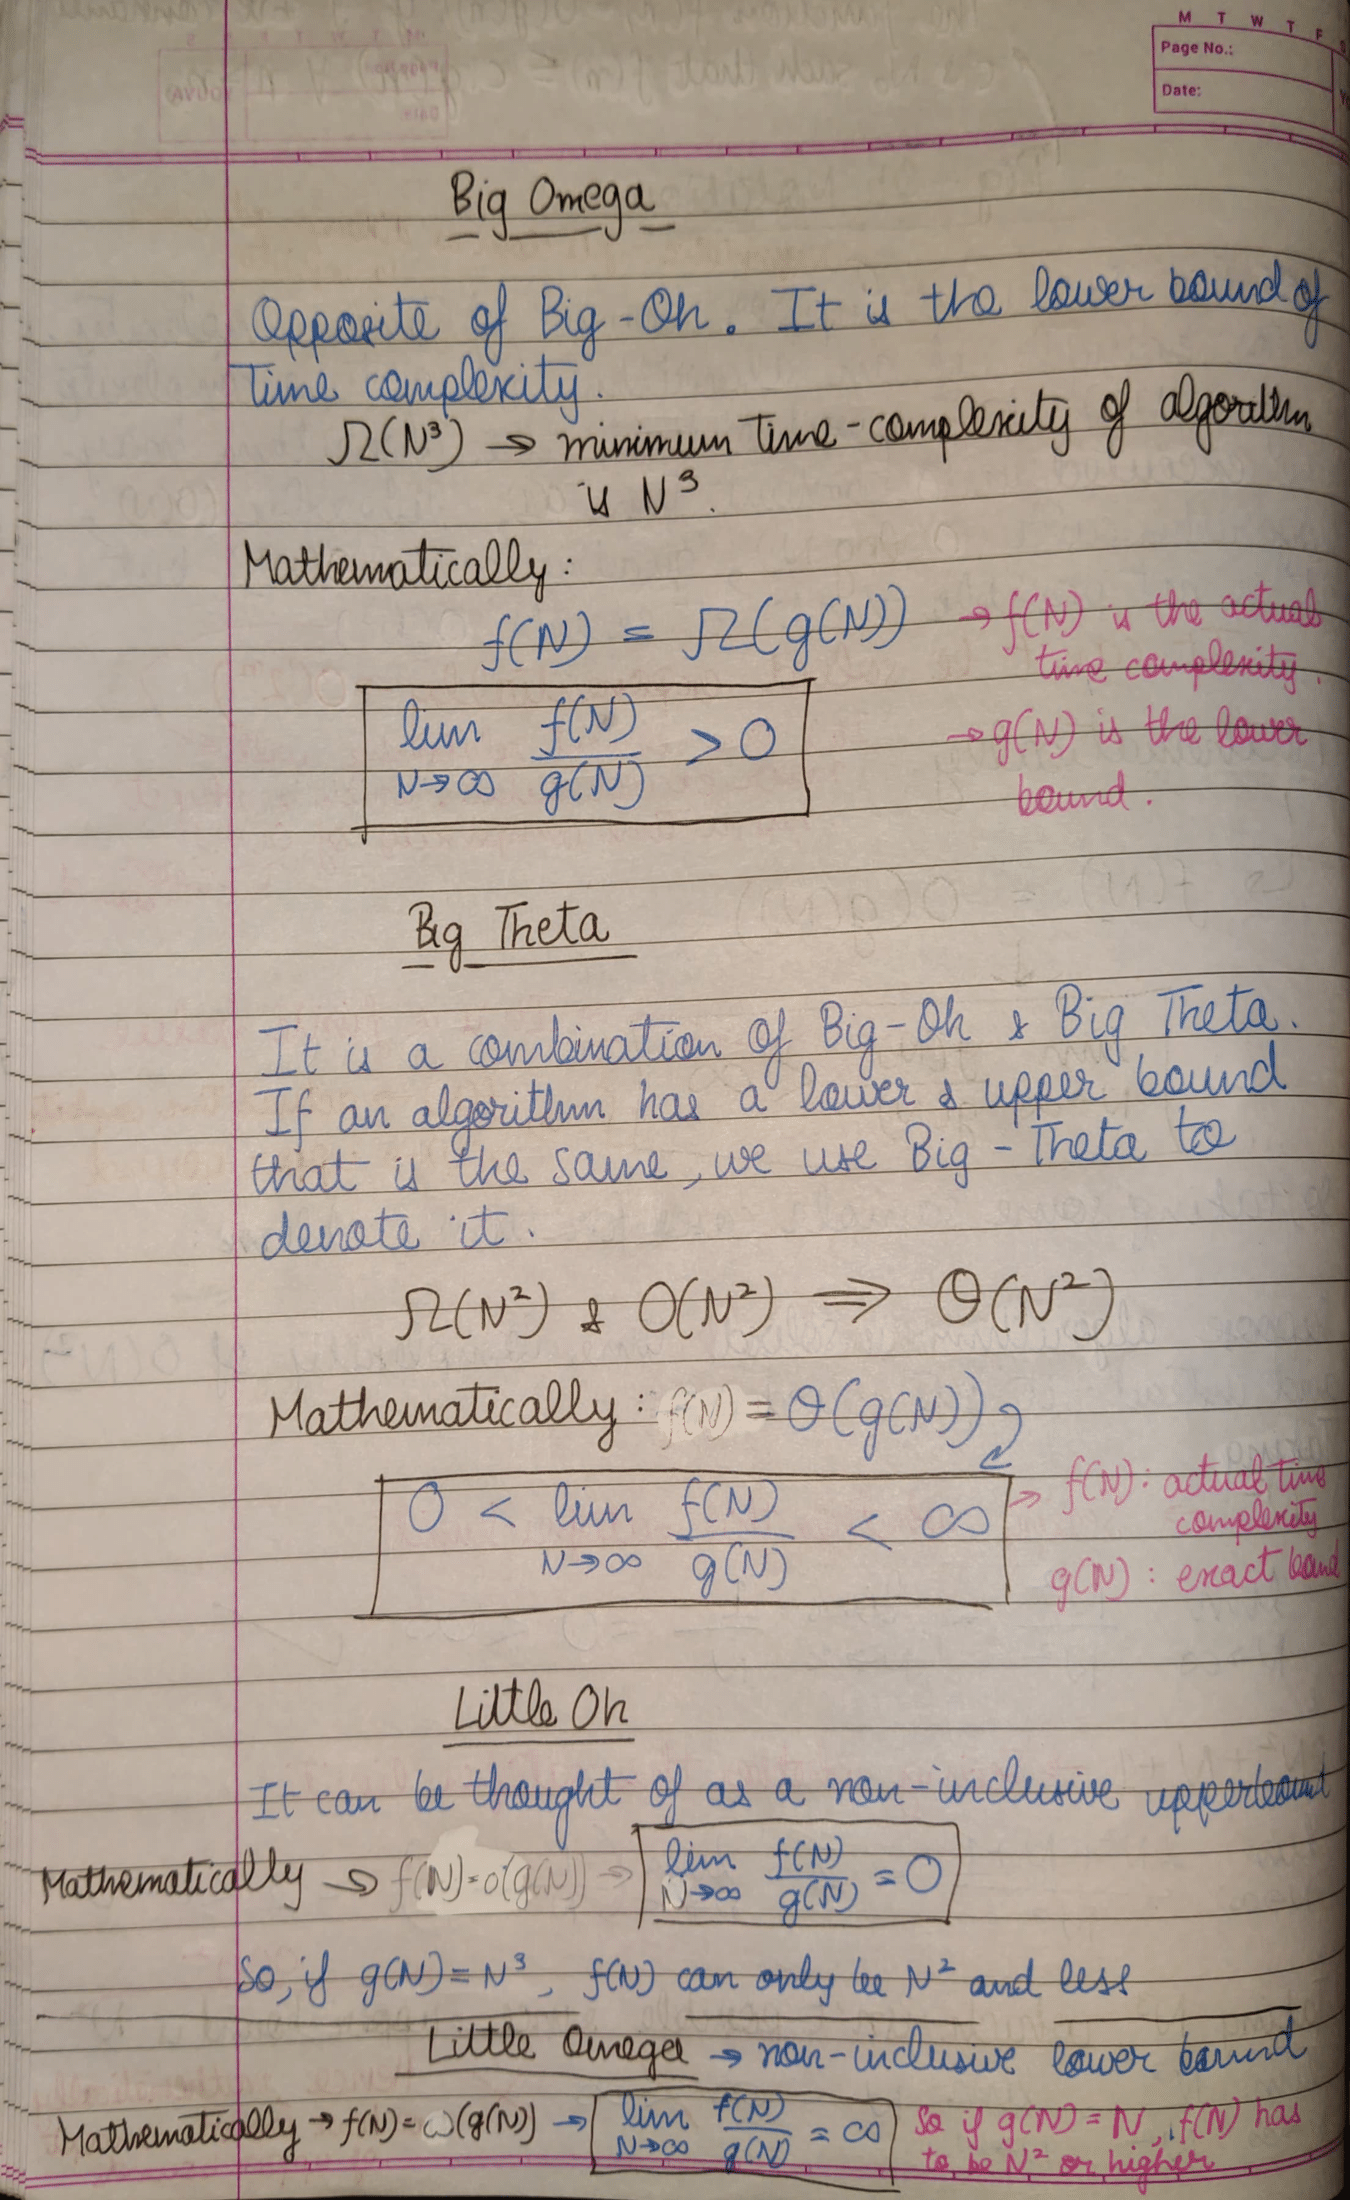 M T W T F
Page No.:
Date:
Big Omega
Opposite of Big-Oh. It is the lower bound of
time complexity.
Ω(N³) → minimum time-complexity of algorithm
is N³.
Mathematically:
f(N) = Ω(g(N)) → f(N) is the actual
time complexity.
lim N→∞ f(N)/g(N) > 0
→ g(N) is the lower
bound.
Big Theta
It is a combination of Big-Oh & Big Theta.
If an algorithm has a lower & upper bound
that is the same, we use Big-Theta to
denote it.
Ω(N²) & O(N²) ⇒ Θ(N²)
Mathematically: f(N) = Θ(g(N))
0 < lim N→∞ f(N)/g(N) < ∞ → f(N): actual time
complexity
g(N): exact bound
Little Oh
It can be thought of as a non-inclusive upperbound
Mathematically → f(N)=o(g(N)) → lim N→∞ f(N)/g(N) = 0
So, if g(N)=N³, f(N) can only be N² and less
Little Omega → non-inclusive lower bound
Mathematically → f(N)=ω(g(N)) → lim N→∞ f(N)/g(N) = ∞ So if g(N)=N, f(N) has
to be N² or higher